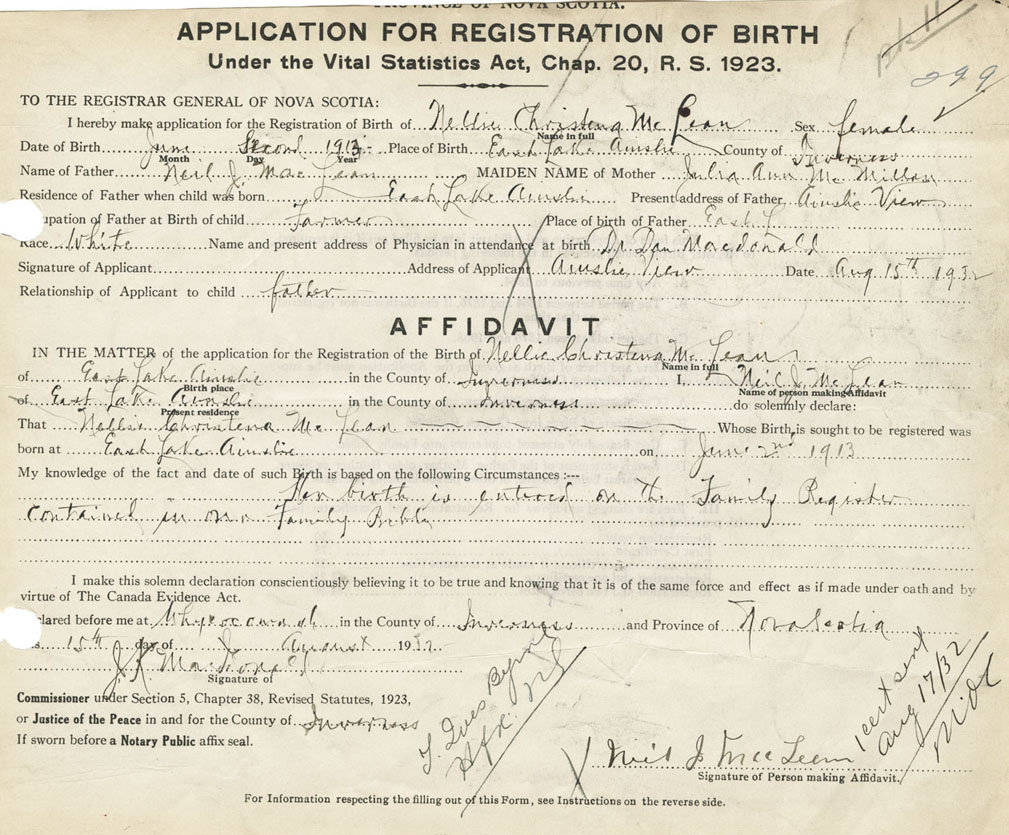 PROVINCE OF NOVA SCOTIA.
APPLICATION FOR REGISTRATION OF BIRTH
Under the Vital Statistics Act, Chap. 20, R. S. 1923.
299
TO THE REGISTRAR GENERAL OF NOVA SCOTIA:
I hereby make application for the Registration of Birth of Nellie Christena Mc Lean Sex female
Name in full
Date of Birth June Second 1913 Place of Birth East Lake Ainslie County of Inverness
Month Day Year
Name of Father Neil J. Mac Lean MAIDEN NAME of Mother Julia Ann Mc Millan
Residence of Father when child was born East Lake Ainslie Present address of Father Ainslie View
upation of Father at Birth of child Farmer Place of birth of Father East L
Race White Name and present address of Physician in attendance at birth Dr Dan Macdonald
Signature of Applicant Address of Applicant Ainslie View Date Aug 15th 1932
Relationship of Applicant to child father
AFFIDAVIT
IN THE MATTER of the application for the Registration of the Birth of Nellie Christena Mc Lean
Name in full
of East Lake Ainslie in the County of Inverness I, Neil J. McLean
Birth place Name of person making Affidavit
of East Lake Ainslie in the County of Inverness do solemnly declare:
Present residence
That Nellie Christena Mc Lean Whose Birth is sought to be registered was
born at East Lake Ainslie on June 2nd 1913
My knowledge of the fact and date of such Birth is based on the following Circumstances :---
Her birth is entered on the Family Register
contained in our Family Bible
I make this solemn declaration conscientiously believing it to be true and knowing that it is of the same force and effect as if made under oath and by
virtue of The Canada Evidence Act.
lared before me at Whycocomagh in the County of Inverness and Province of Nova Scotia
s 15th day of August 1932
Signature of
Commissioner under Section 5, Chapter 38, Revised Statutes, 1923,
or Justice of the Peace in and for the County of Inverness
If sworn before a Notary Public affix seal.
Hfx. NS
1 cert sent
Aug 17/32
Neil J MacLean
Signature of Person making Affidavit.
For Information respecting the filling out of this Form, see Instructions on the reverse side.